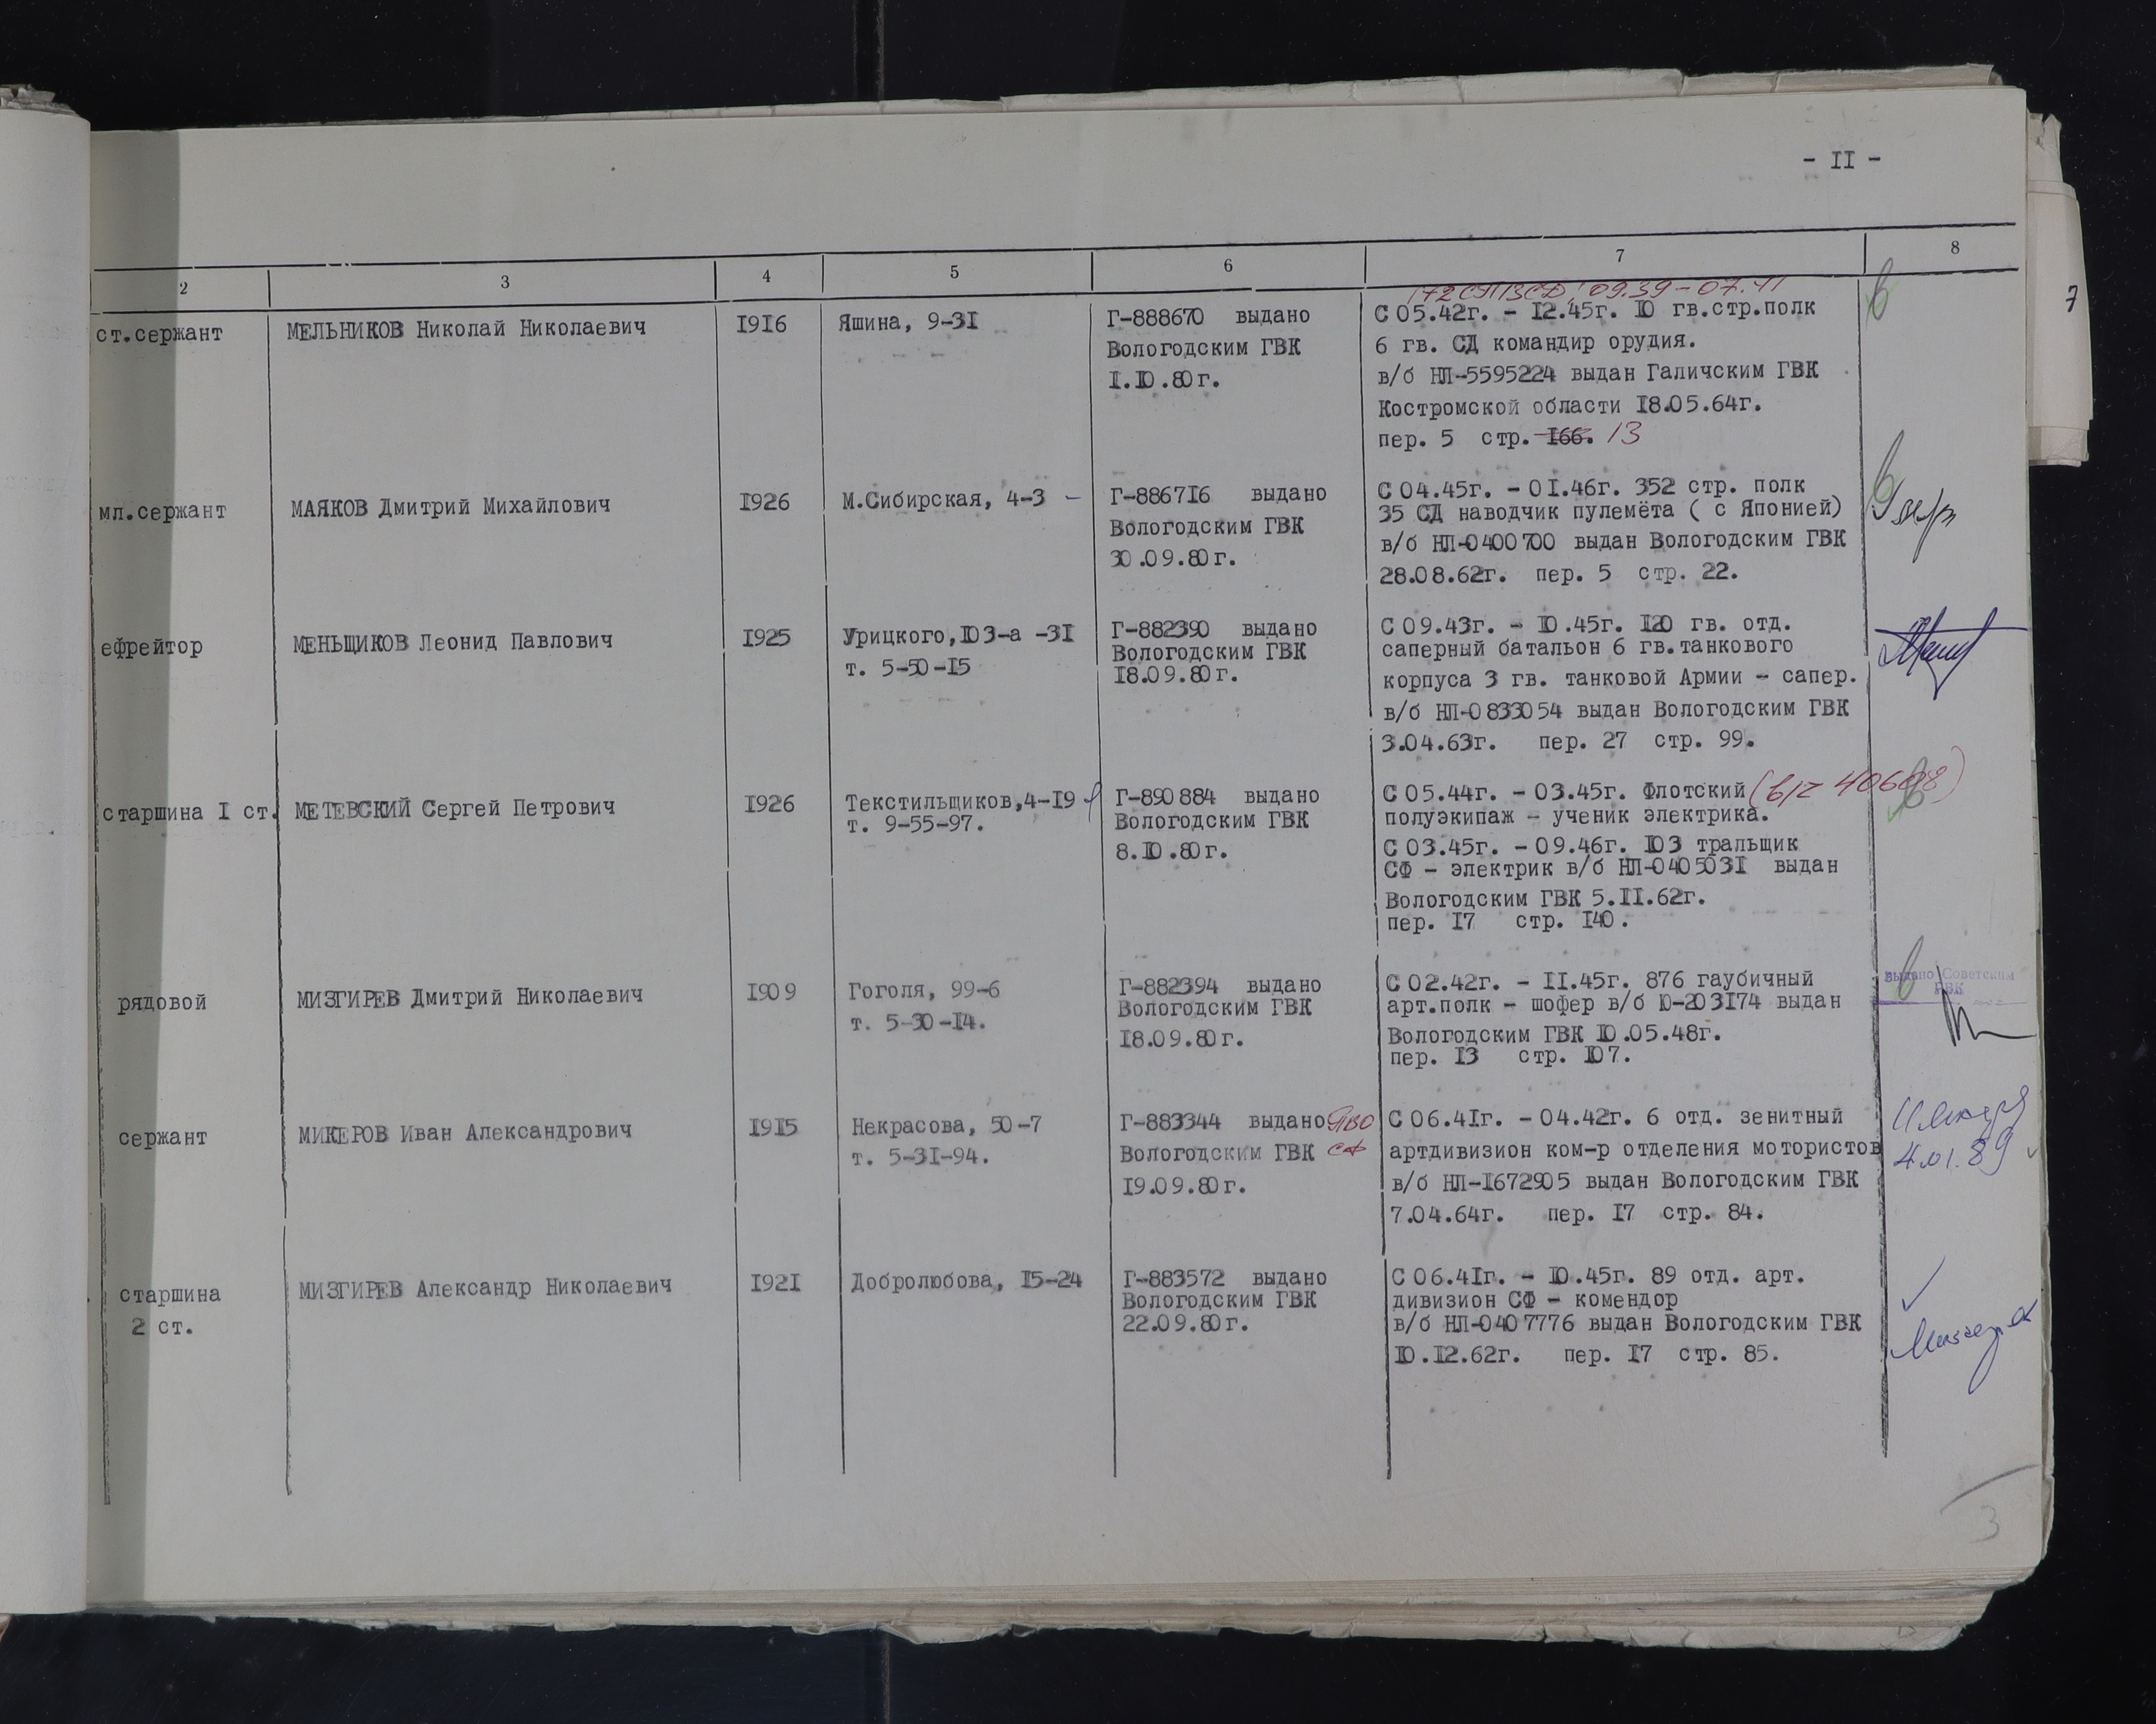 - II -
2 3 4 5 6 7 8
7
09.39 - 07.41
ст.сержант
МЕЛЬНИКОВ Николай Николаевич
I9I6
Яшина, 9-3I
Г-888670 выдано
Вологодским ГВК
I.IO.80г.
С 05.42г. - I2.45г. IO гв.стр.полк
6 гв. СД командир орудия.
в/б НЛ-5595224 выдан Галичским ГВК
Костромской области I8.05.64г.
пер. 5 стр. I66. 13
мл.сержант
МАЯКОВ Дмитрий Михайлович
I926
М.Сибирская, 4-3
Г-8867I6 выдано
Вологодским ГВК
30.09.80г.
С 04.45г. - 0I.46г. 352 стр. полк
35 СД наводчик пулемёта ( с Японией)
в/б НЛ-0400700 выдан Вологодским ГВК
28.08.62г. пер. 5 стр. 22.
ефрейтор
МЕНЬЩИКОВ Леонид Павлович
I925
Урицкого,IO3-а -3I
т. 5-50-I5
Г-882390 выдано
Вологодским ГВК
I8.09.80г.
С 09.43г. - IO.45г. I20 гв. отд.
саперный батальон 6 гв.танкового
корпуса 3 гв. танковой Армии - сапер.
в/б НЛ-0833054 выдан Вологодским ГВК
3.04.63г. пер. 27 стр. 99.
старшина I ст.
МЕТЕВСКИЙ Сергей Петрович
I926
Текстильщиков,4-I9
т. 9-55-97.
Г-890884 выдано
Вологодским ГВК
8.IO.80г.
С 05.44г. - 03.45г. Флотский
полуэкипаж - ученик электрика.
С 03.45г. - 09.46г. IO3 тральщик
СФ - электрик в/б НЛ-040503I выдан
Вологодским ГВК 5.II.62г.
пер. I7 стр. I40.
рядовой
МИЗГИРЕВ Дмитрий Николаевич
I909
Гоголя, 99-6
т. 5-30-I4.
Г-882394 выдано
Вологодским ГВК
I8.09.80г.
С 02.42г. - II.45г. 876 гаубичный
арт.полк - шофер в/б Ю-203I74 выдан
Вологодским ГВК IO.05.48г.
пер. I3 стр. IO7.
выдано Советским
РВК
сержант
МИКЕРОВ Иван Александрович
I9I5
Некрасова, 50-7
т. 5-3I-94.
Г-883344 выдано ПВО
Вологодским ГВК СФ
I9.09.80г.
С 06.4Iг. - 04.42г. 6 отд. зенитный
артдивизион ком-р отделения мотористов
в/б НЛ-I672905 выдан Вологодским ГВК
7.04.64г. пер. I7 стр. 84.
4.01.89
старшина
2 ст.
МИЗГИРЕВ Александр Николаевич
I92I
Добролюбова, I5-24
Г-883572 выдано
Вологодским ГВК
22.09.80г.
С 06.4Iг. - IO.45г. 89 отд. арт.
дивизион СФ - комендор
в/б НЛ-0407776 выдан Вологодским ГВК
IO.I2.62г. пер. I7 стр. 85.
3